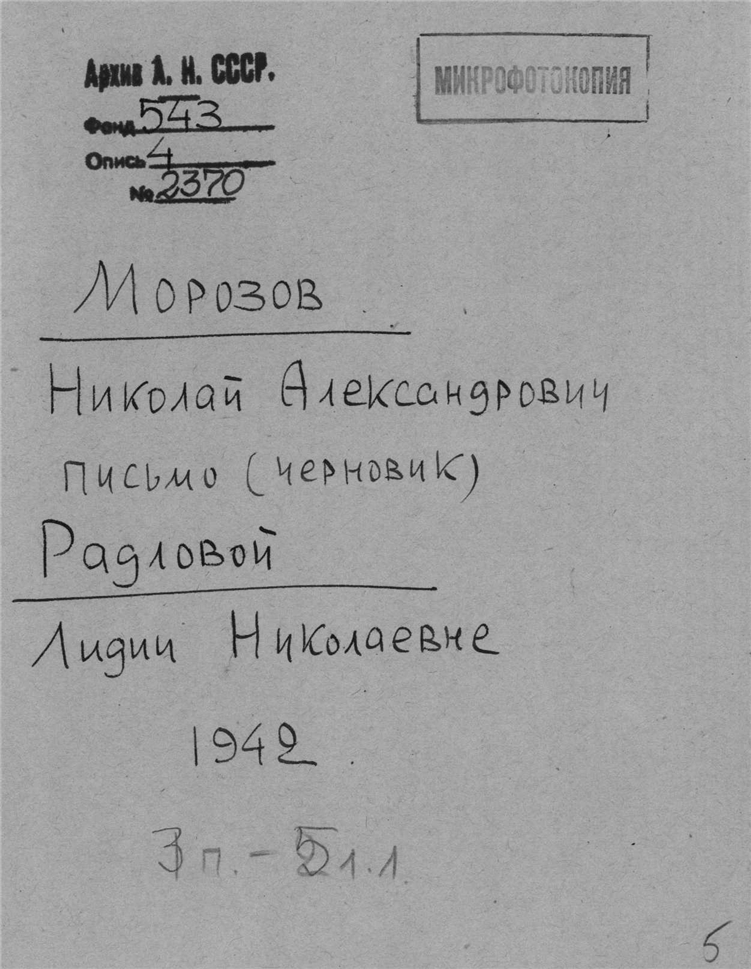 Архив А. Н. СССР.
Фонд 543
Опись 4
№ 2370
МИКРОФОТОКОПИЯ
Морозов
Николай Александрович
письмо (черновик)
Радловой
Лидии Николаевне
1942
п. – л.л.
5